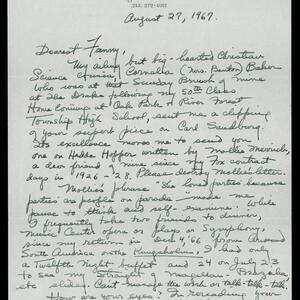 August 27, 1967.
Dearest Fanny,
My ailing but big-hearted Christian
Science cousin, Cornelia (Mrs. Benton) Baker
who was at that Sunday Brunch of mine
at The Drake following my 50th Class
Homecoming at Oak Park & River Forest
Township High School, sent me a clipping
of your superb piece on Carl Sandburg.
Its excellence moves me to send you
one on Hedda Hopper written by Mollie Merrick,
a dear friend of mine since my Fox contract
days in 1926-28. Please destroy Mollie's letter.
Mollie's phrase "She loved parties because
parties are people on parade" made me
pause to think and self-examine. While
I frequently take two friends to dinner,
Music Center opera or plays or Symphony,
since my return in Dec 4, '66 from Around
South America on the Kungsholm, I had only
a Twelfth Night Buffet and 24 on July 23
to see my Straight of Magellan - Brazil
etc slides. Can't manage the work or talk-talk-talk.
How are your eyes? In rereading your